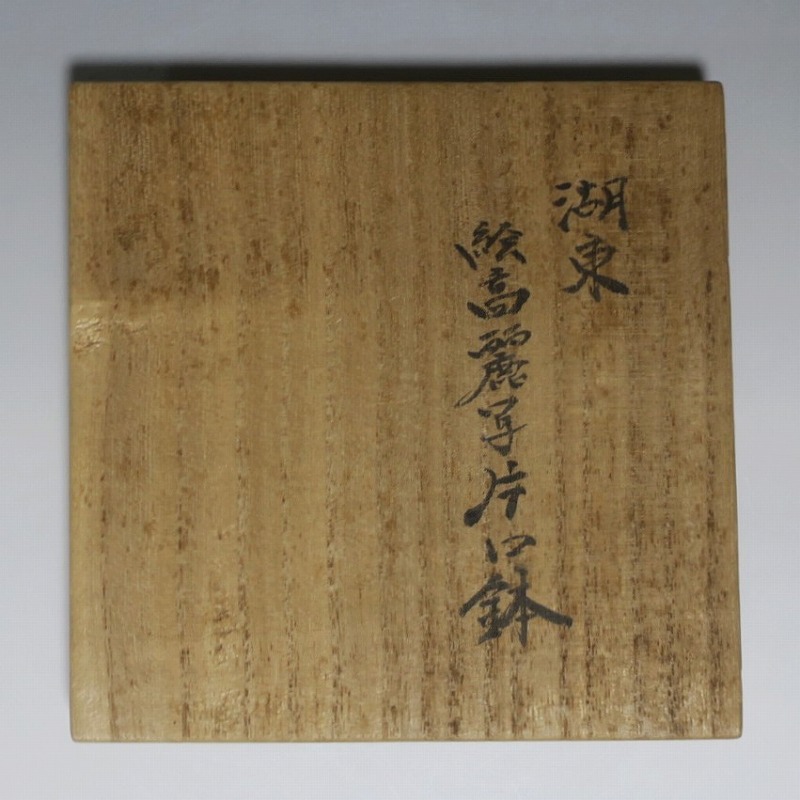 湖東
絵高麗写片口鉢